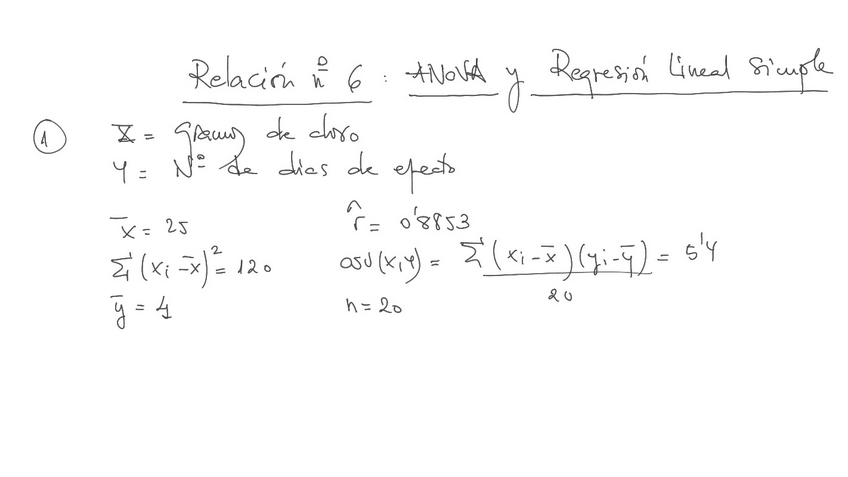 Relación nº 6 : ANOVA y Regresión Lineal Simple
① X = gramos de cloro
Y = Nº de dias de efecto
x̄ = 25 r̂ = 0'8853
Σ(xi - x̄)² = 120 cov(x,y) = Σ(xi - x̄)(yi - ȳ) / 20 = 5'4
ȳ = 4 n = 20